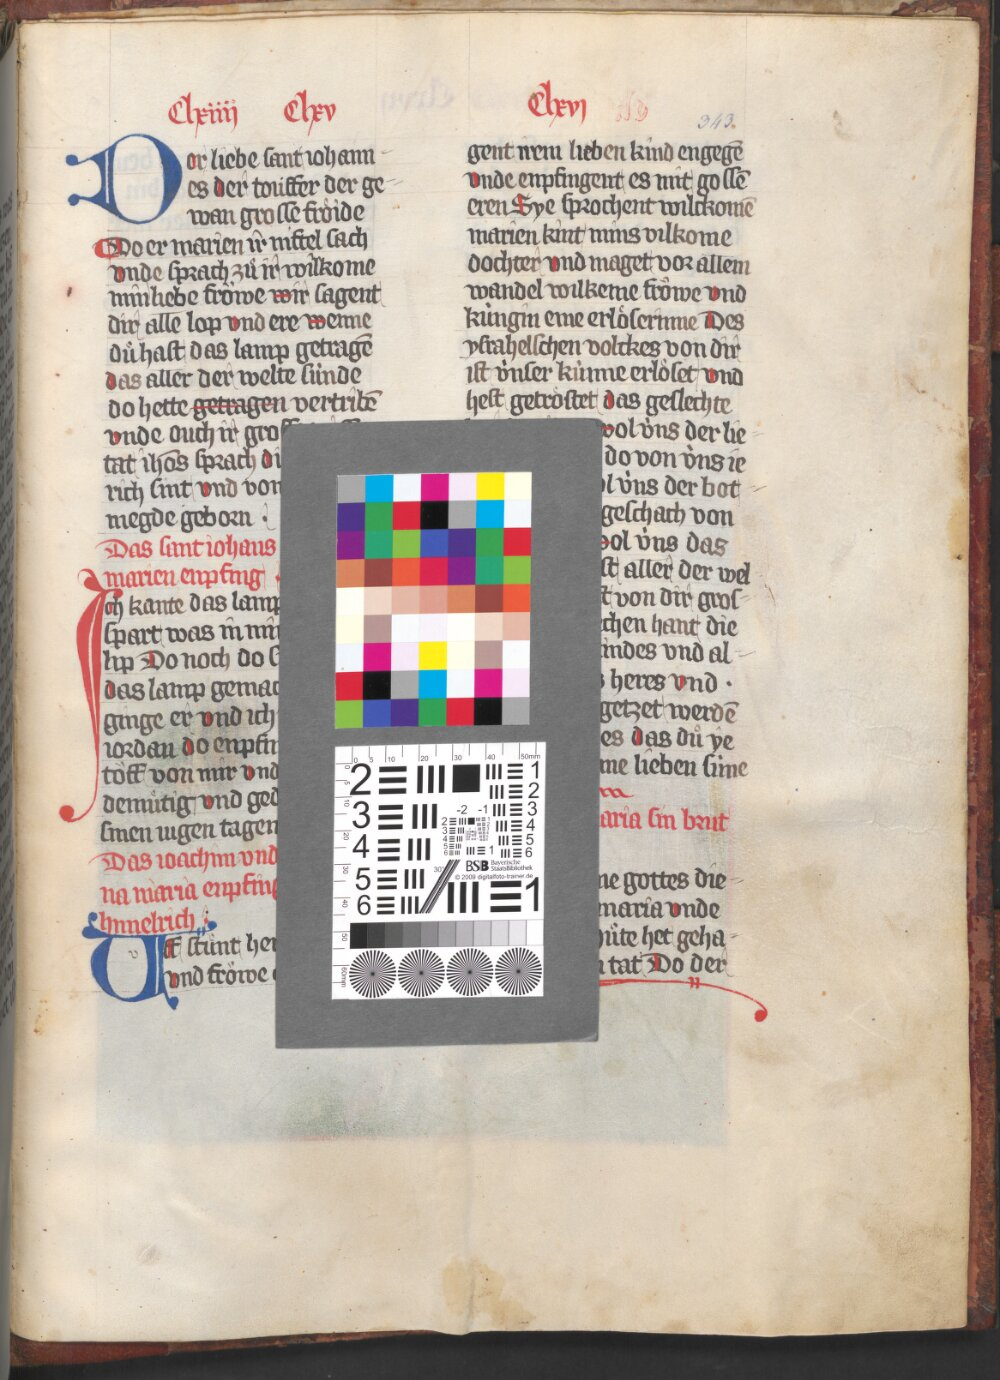 Clxiiii Clxv
Dor liebe sant iohann
es der touffer der ge
wan grosse fröide
Do er marien ir niftel sach
vnde sprach zů ir wilkome
min liebe fröwe wir sagent
dir alle lop vnd ere wenne
dů hast das lamp getragē
das aller der welte sünde
do hette getragen vertribē
vnde ouch ir gros
tat ihōs sprach di
rich sint vnd von
megde geborn
Das sant iohans
marien enpfing
Ich kante das lamp
spart was in mir
lip Do noch do
das lamp gemac
ginge er vnd ich
iordan do enpfin
töff von mir vnd
demütig vnd ged
sinen iugen tagen
Das ioachim vnd
na maria enpfing
himelrich
Uf stůnt her
vnd fröwe
Clxvj
343.
gent irem lieben kind engegē
vnde enpfingent es mit gossē
eren Sye sprochent wilckomē
marien kint mins vilkome
dochter vnd maget vor allem
wandel wilkeme fröwe vnd
küngin eine erlöserinne Des
ysrahelschen volckes von dir
ist v̊nser künne erlöset vnd
hest getröstet das geslechte
wol v̊ns der lie
do von v̊ns ie
v̊ns der bot
geschach von
wol v̊ns das
aller der wel
von dir gros
hant die
vnd al
heres vnd
gesetzet werdē
es das dů ye
lieben sune
maria sin brut
gottes die
maria vnde
hüte het geha
tat Do der
0 5 10 20 30 40 50mm
2 1
2
3 -2 -1 3
4 4
5
6
5 BSB Bayerische
StaatsBibliothek
© 2009 digitalfoto-trainer.de
6 1
60mm